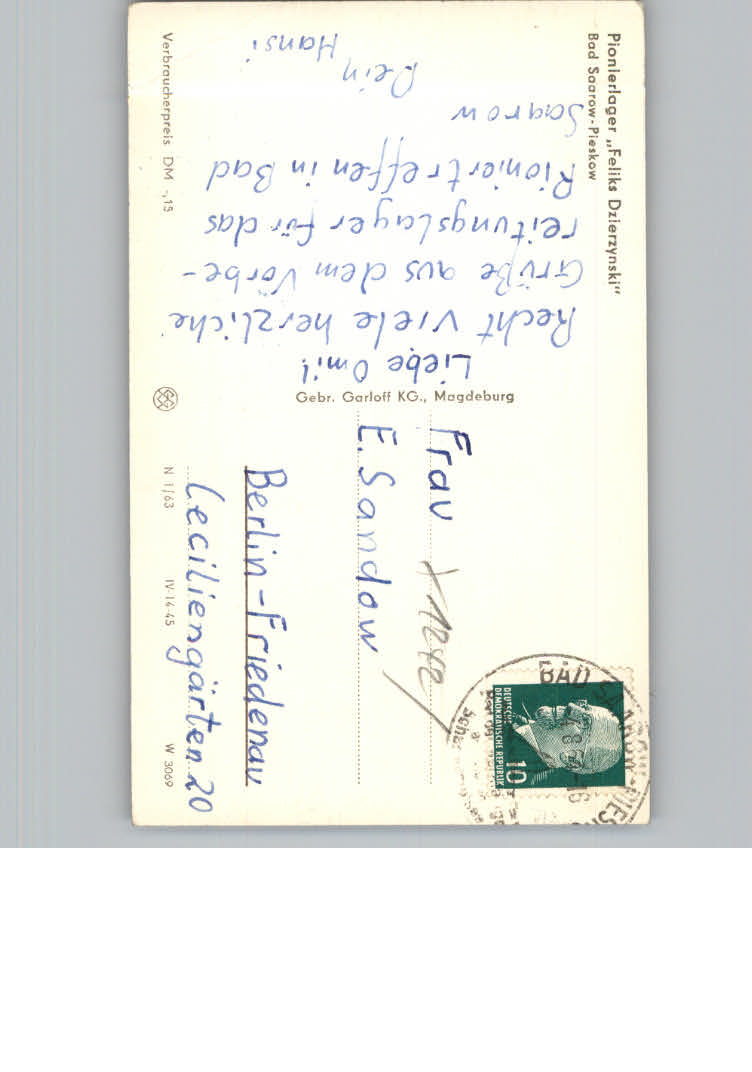 Pionierlager „Feliks Dzierzynski“
Bad Saarow-Pieskow
Liebe Omi!
Recht viele herzliche
Grüße aus dem Vorbe-
reitungslager für das
Pioniertreffen in Bad
Saarow
Dein
Hansi
Verbraucherpreis DM -,15
Gebr. Garloff KG., Magdeburg
BAD SAAROW-PIESKOW
DEUTSCHE
DEMOKRATISCHE REPUBLIK
10
Frau
X 1242
E. Sandow
Berlin-Friedenau
Ceciliengärten 20
N 1/63 IV-14-45 W 3069